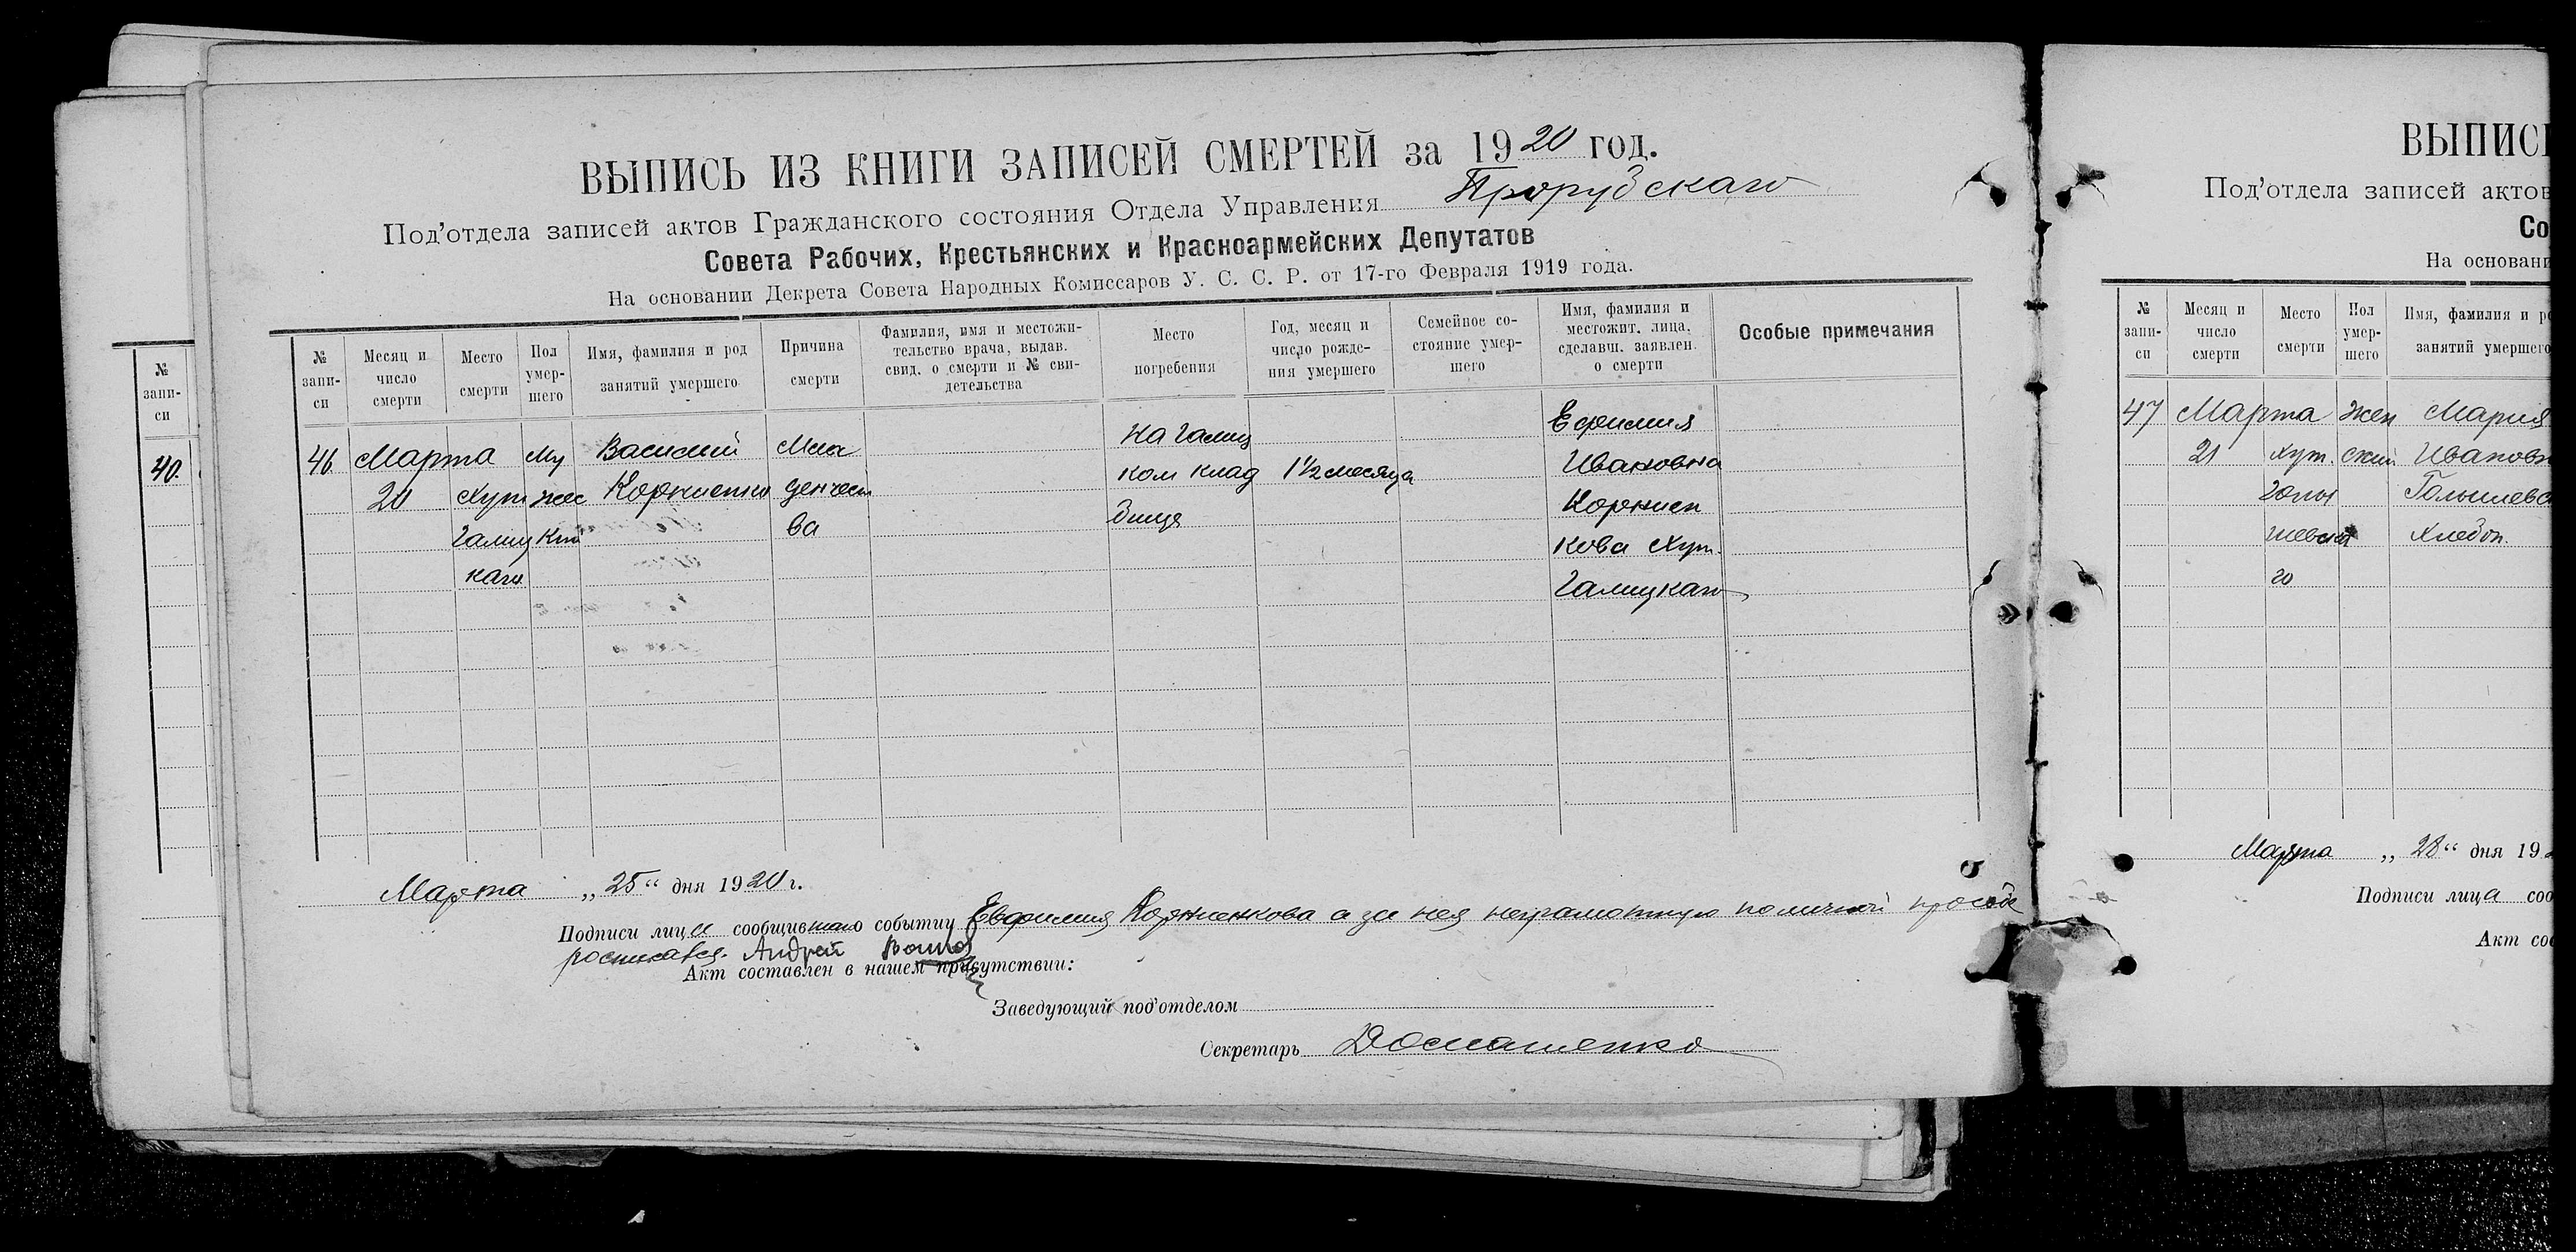 ВЫПИСЬ ИЗ КНИГИ ЗАПИСЕЙ СМЕРТЕЙ за 1920 год.
Под’отдела записей актов Гражданского состояния Отдела Управления Прорубскаго
Совета Рабочих, Крестьянских и Красноармейских Депутатов
На основании Декрета Совета Народных Комиссаров У. С. С. Р. от 17-го Февраля 1919 года.
№ запи-
си
Месяц и
число
смерти
Место
смерти
Пол
умер-
шего
Имя, фамилия и род
занятий умершего
Причина
смерти
Фамилия, имя и местожи-
тельство врача, выдав.
свид. о смерти и № сви-
детельства
Место
погребения
Год, месяц и
число рожде-
ния умершего
Семейное со-
стояние умер-
шего
Имя, фамилия и
местожит. лица,
сделавш. заявлен.
о смерти
Особые примечания
46
Марта
20
Хут
Галиц
каго
Му
жес
кий
Василий
Корниенко
Мла
денчест
ва
на галиц
ком клад
бище
1½ месяца
Ефимия
Ивановна
Корниен
кова Хут.
Галицкаго
Марта „25“ дня 1920 г.
Подписи лица сообщившаго событии Евфимия Корниенкова а за нея неграмотную по личной
росписався. Андрей
Акт составлен в нашем присутствии:
Заведующий под’отделом
Секретарь Домашенко
№
запи-
си
40.
ВЫПИС
Под’отдела записей актов
Со
На основани
№
запи-
си
Месяц и
число
смерти
Место
смерти
Пол
умер-
шего
Имя, фамилия и р
занятий умершего
47
Марта
21
Хут.
го
Жен
ский
Мария
Ивановн
Хлебоп.
Марта „28“ дня 19
Подписи лица соо
Акт со